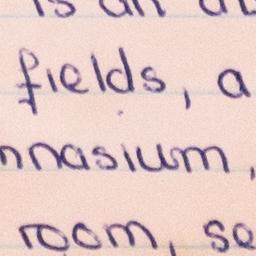 is an
fields, a
nnasium,
room, se